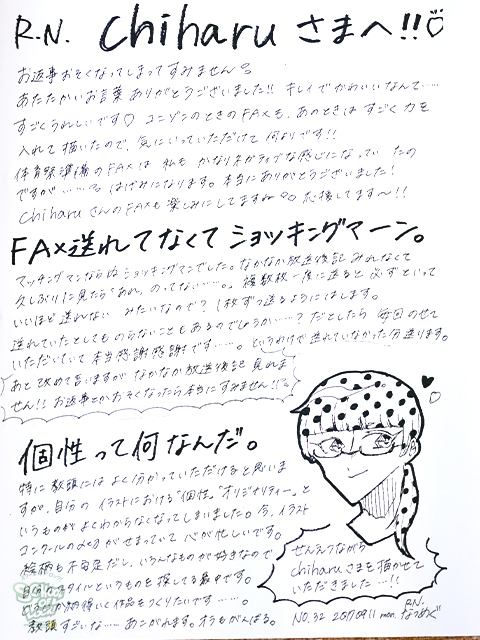 R.N. chiharu さまへ!!♡
お返事おそくなってしまってすみません
あたたかいお言葉ありがとうございました!! キレイでかわいいなんて……
すごくうれしいです♡ コンゾンのときのFAXも、あのときはすごく力を
入れて描いたので、気にいっていただけて何よりです!!
体育祭準備のFAXは 私も かなりネガティブな感じになってい たの
ですが……。はげみになります。本当にありがとうございました!
chiharuさんのFAXも楽しみにしてますね 応援してます〜!!
FAX送れてなくてショッキングマーン。
マッチングマンならぬショッキングマンでした。なかなか放送後記みれなくて
久しぶりに見たら「あれ、のってない……。 複数枚一度に送ると必ずといって
いいほど送れない みたいなので?1枚ずつ送るようにはします。
送れていたとしても のらないこともあるのでしょうか……?だとしたら 毎回のせて
いただいていて本当感謝感謝です……。というわけで送れていなかった分送ります。
あと改めて言いますが なかなか放送後記 見れま
せん!! お返事とかおそくなったら本当にすみません!!
個性って何なんだ。
特に教頭には よく分かっていただけると思いま
すが、自分の イラストにおける"個性"、"オリジナリティー"と
いうものが よくわからなくなってしまいました。今、イラスト
コンクールの〆切がせまっていて 心が忙しいです。
絵柄も不安定だし、いろんなものが好きなので
自分のスタイルというものを 探してる最中です。
納得いく作品をつくりたいです……。
教頭すごいな…… あこがれます。オラもがんばる。
せんえつながら
chiharuさまを描かせて
いただきました…!!
NO.32 2017.09.11 mon. R.N.なつめぐ